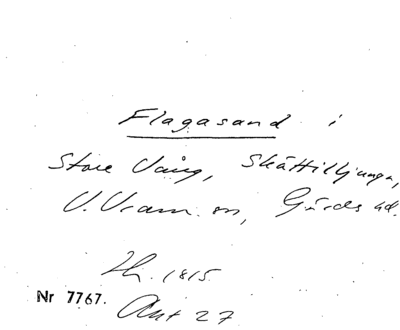 Flagasand i
Store Vång, Skättilljunga,
V. Vram sn, Gärds hd.
Lh. 1815
Nr 7767.
Akt 27